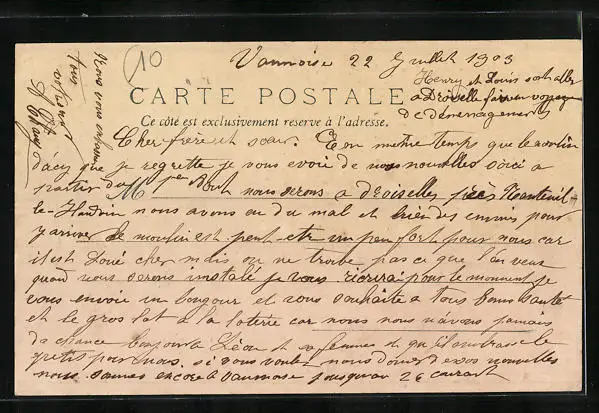 10
Vaumoise 22 Juillet 1903
Henry et Louis sont allés
a Droiselle faire un voyage
de démenagement
CARTE POSTALE
Ce côté est exclusivement reservé à l'adresse.
Cher frère et sœur. En même temps que le moulin
d'acy que je regrette je vous envoie de nos nouvelles voici a
partir du 1er Août nous serons a Droiselles près Nanteuil-
le-Haudouin nous avons eu du mal et bien des ennuis pour
y arriver le moulin est peut-etre un peu fort pour nous car
il est Loué cher mais on ne trouve pas ce que l'on veux
quand nous serons instalé je vous riécrirai pour le moment je
vous envoie un bonjour et vous souhaite a tous bonne santé
et le gros lot a la loterie car nous nous n'avons jamais
de chance bonjour a Léon et sa femme et qu'il embrasse le
petit pour nous. si vous voulez nous donner de vos nouvelles
nous sommes encore a Vaumoise jusqu'au 26 courant
Nous vous embrassons
tous